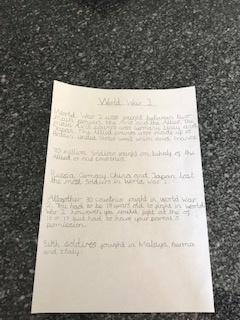 World War 2
World War 2 was fought between two
main powers the Axis and the Allies. The
main Axis powers were Germany Italy and
Japan. The Allied powers were made up of
Britain United States
70 million soldiers fought on behalf of the
Allied or Axis countries.
Russia Germany China and Japan lost
the most soldiers in World War 2.
Altogether 30 countries fought in World War
2. You had to be 18 years old to fight in World
War 2 however you could fight at the of
16 or 17 but had to have your parent's
permission.
Sikh soldires fought in Malaya, Burma
and Italy.